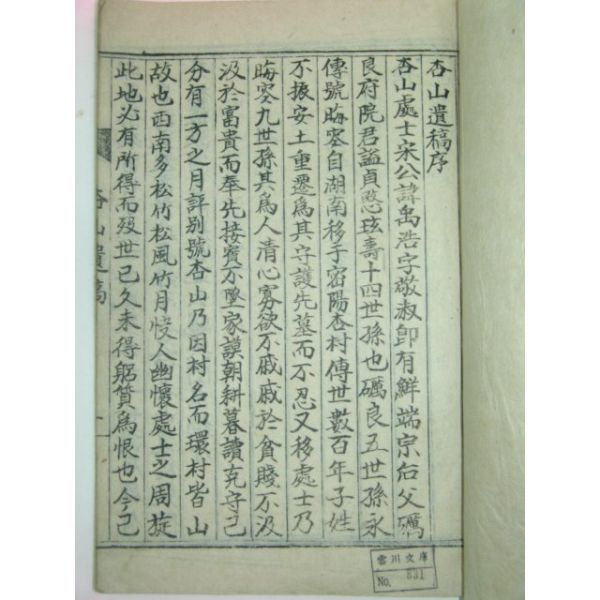 杏山遺稿序
杏山處士宋公諱禹浩字敬淑卽有鮮端宗后父礪
良府院君謚貞愍玹壽十四世孫也礪良五世孫永
傳號晦窒自湖南移于密陽杏村傳世數百年子姓
不振安土重遷爲其守護先墓而不忍又移處士乃
晦窒九世孫其爲人清心寡欲不戚戚於貧賤不汲
汲於富貴而奉先接賓不墜家謨朝耕暮讀克守己
分有一方之月評別號杏山乃因村名而環村皆山
故也西南多松竹松風竹月惱人幽懷處士之周旋
此地必有所得而歿世已久未得躬質爲恨也今己
杏山遺稿
一
雲川文庫
No. 831